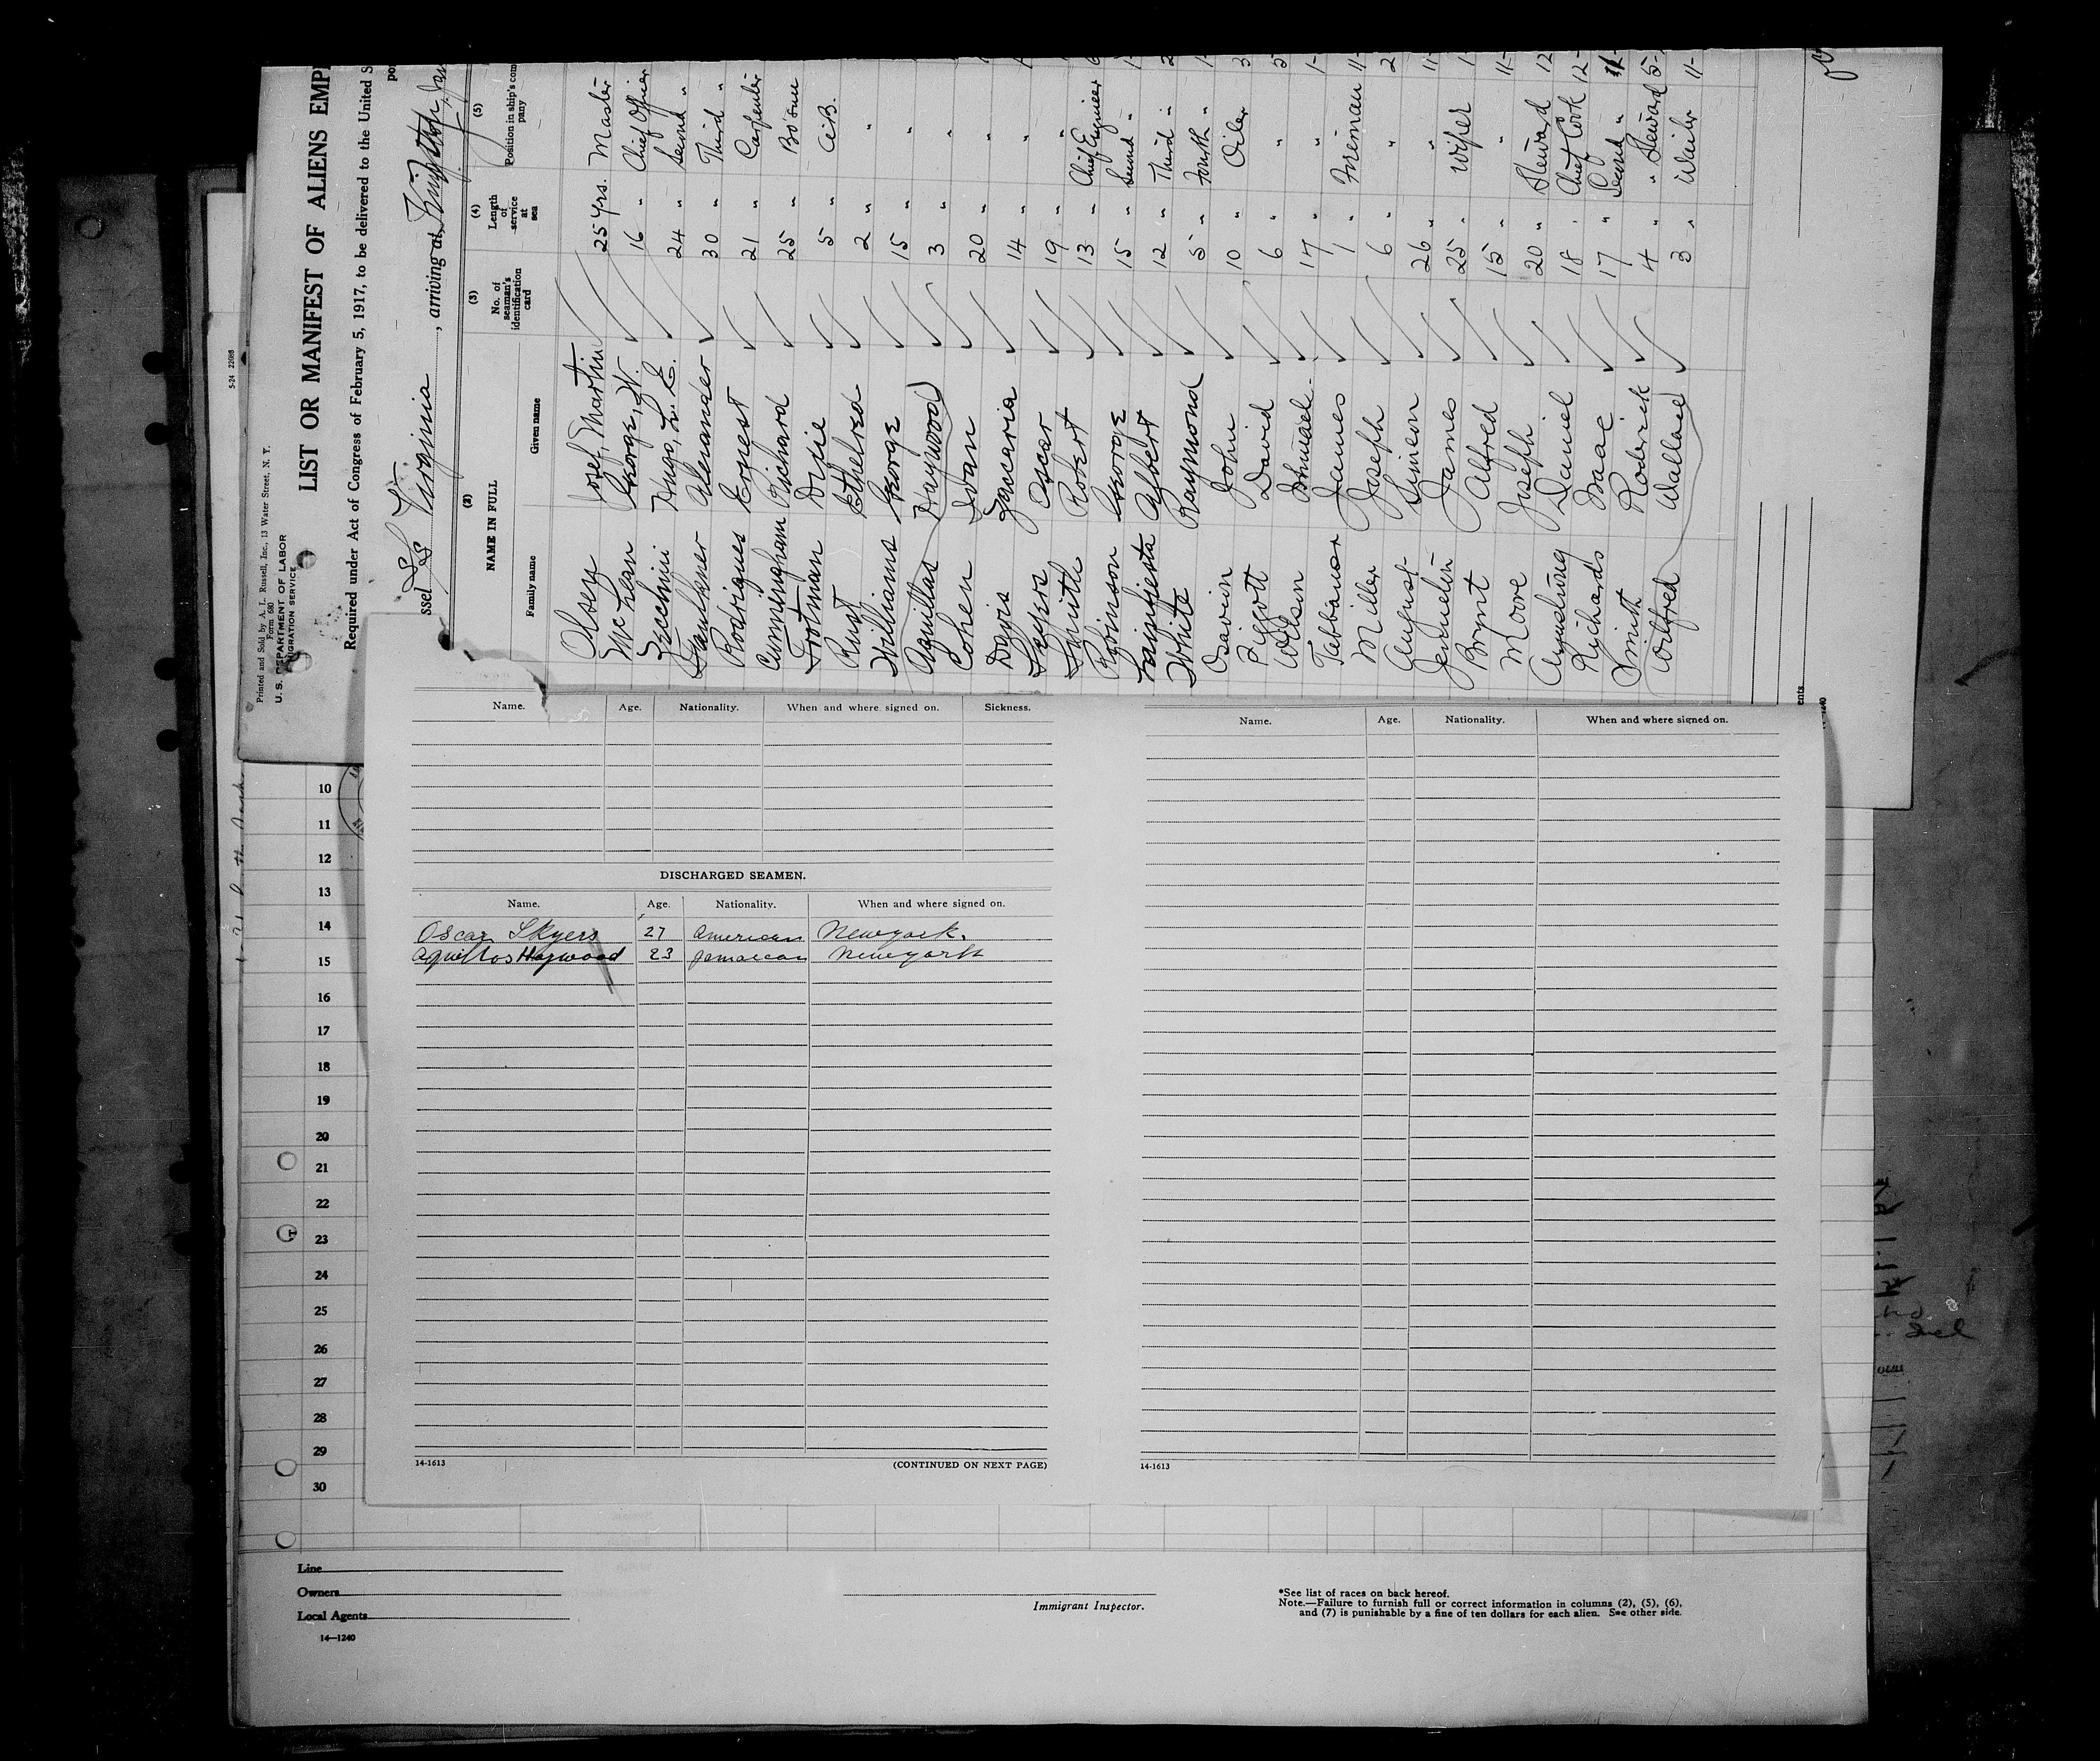 5-24 22086
Printed and Sold by A. L. Russell, Inc., 13 Water Street, N. Y.
Form 680
U. S. DEPARTMENT OF LABOR
IMMIGRATION SERVICE
LIST OR MANIFEST OF ALIENS EMP
Required under Act of Congress of February 5, 1917, to be delivered to the United S
ssel SS Virginia, arriving at Kingston, Jam
(2) (3) (4) (5)
NAME IN FULL No. of seaman's identification card Length of service at sea Position in ship's company
Family name Given name
Olsen Josef, Martin 25 Yrs. Master
McLean George, W. 16 " Chief Officer
Zecchini Hugo, L. E. 24 " Second "
Faulkner Alexander 30 " Third "
Rodriques Ernest 21 " Carpenter
Cunningham Richard 25 " Bo'sun
Trotman Dixie 5 " A.B.
Rust Etheldred 2 " "
Williams George 15 " "
Aquillas Haywood 3 " "
Cohen Ivan 20 " "
Davis Zacaria 14 " "
Skyers Oscar 19 " "
Smith Robert 13 " Chief Engineer
Robinson George 15 " Second "
Albert 12 " Third "
White Raymond 5 " Fourth "
John 10 " Oiler
Piggott David 6 " "
Wilson 14 " "
James 1 " Fireman
Miller Joseph 6 " "
August Simeon 26 " "
James 25 " Wiper
Brynt Alfred 15 " "
Moore Joseph 20 " Steward
Daniel 18 " Chief Cook
Richards Isaac 17 " Second "
Smith Roderick 4 " " Steward
Wilfred Wallace 3 " Waiter
Name. Age. Nationality. When and where signed on. Sickness.
DISCHARGED SEAMEN.
Name. Age. Nationality. When and where signed on.
Oscar Skyers 27 American Newyork.
Aquillos Haywood 23 Jamaican Newyork
14-1613 (CONTINUED ON NEXT PAGE)
Name. Age. Nationality. When and where signed on.
14-1613
10
11
12
13
14
15
16
17
18
19
20
21
22
23
24
25
26
27
28
29
30
Line
Owners
Local Agents
14—1240
Immigrant Inspector.
*See list of races on back hereof.
Note.—Failure to furnish full or correct information in columns (2), (5), (6),
and (7) is punishable by a fine of ten dollars for each alien. See other side.